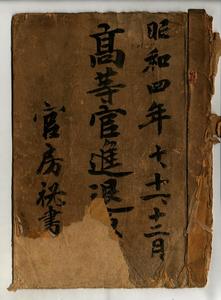 昭和四年十、十一、十二月
高等官進退
官房秘書